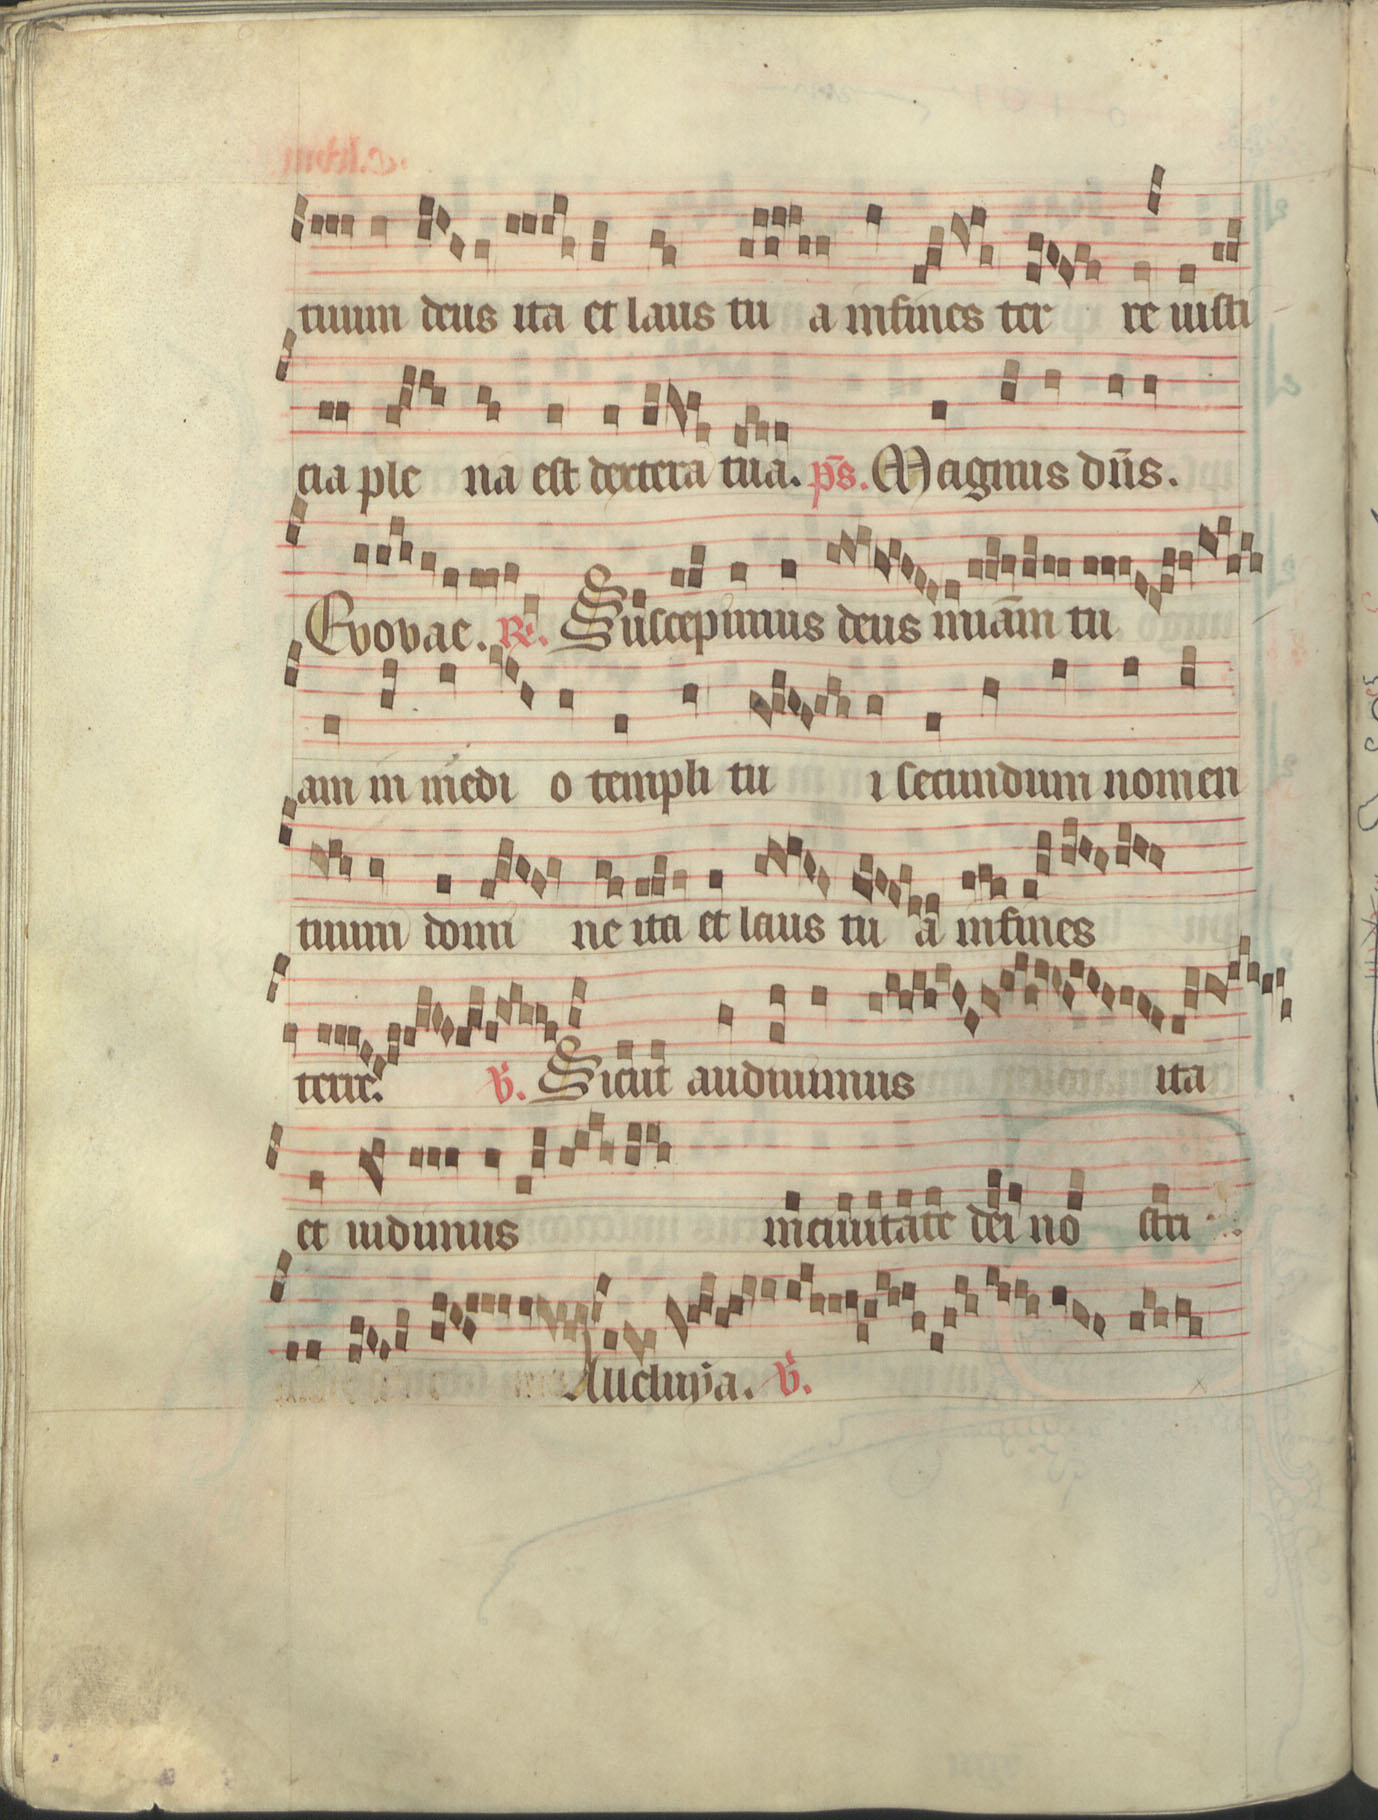 tuum deus ita et laus tu a infines ter re iusti
cia ple na est dextera tua. p̄s. Magnus dn̄s.
Evovae. R̄e. Suscepimus deus miam̄ tu
am in medi o templi tu i secundum nomen
tuum domi ne ita et laus tu a infines
terre. V̄. Sicut audiuimus ita
et uidimus inciuitate dei no stri
Alleluya. V̄.